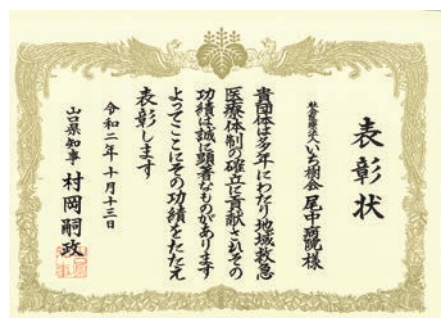 表彰状
社会医療法人いち樹会 尾中病院様
貴団体は多年にわたり地域救急
医療体制の確立に貢献されその
功績は誠に顕著なものがあります
よってここにその功績をたたえ
表彰します
令和二年十月十三日
山口県知事 村岡嗣政